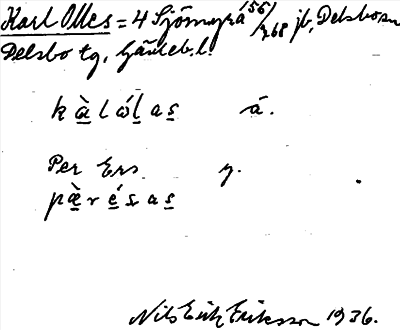 Karl Olles = 4 Sjömyra 156/268 jb, Delsbo sn
Delsbo tg, Gävleb. l.
kà̱lólas̱ á.
Per Ers y.
pæ̱̀ré̱s̱as̱
Nils Erik Eriksson 1936.